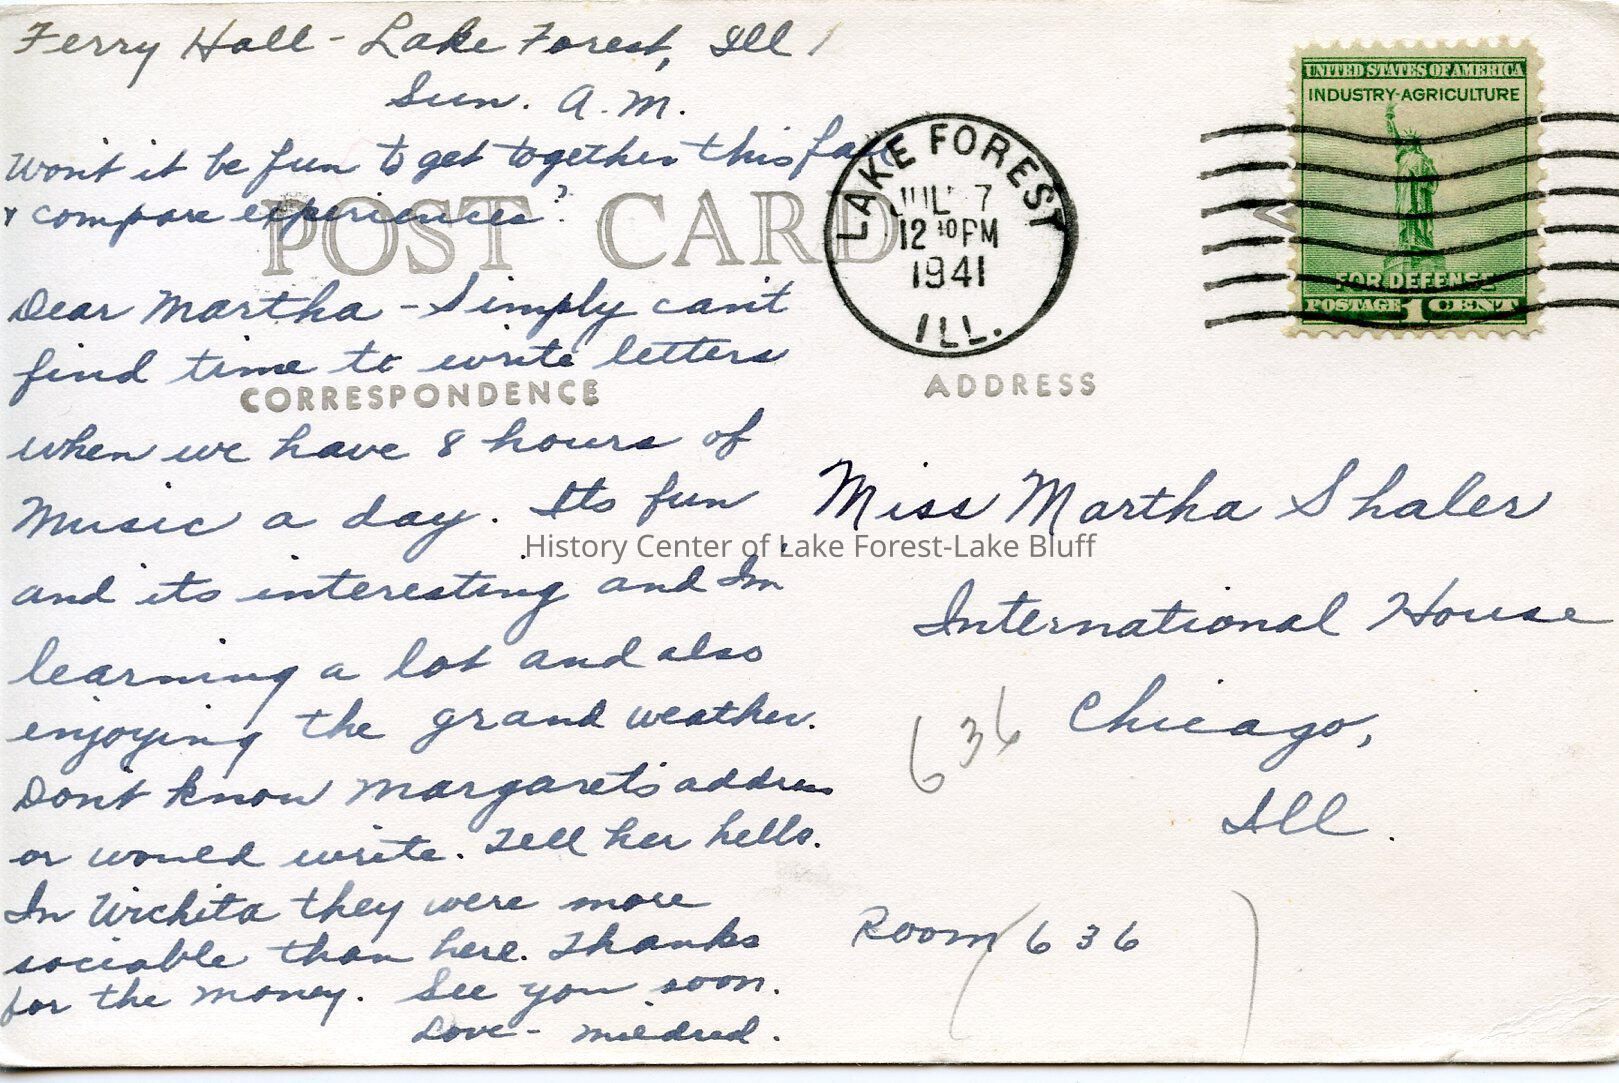 Ferry Hall - Lake Forest, Ill
Sun. A.M.
Won't it be fun to get together this fall
& compare experiences?
POST CARD
Dear Martha - Simply can't
find time to write letters
CORRESPONDENCE
when we have 8 hours of
Music a day. Its fun
and its interesting and Im
learning a lot and also
enjoying the grand weather.
Don't know Margaret's address
or would write. Tell her hello.
In Wichita they were more
sociable than here. Thanks
for the money. See you soon.
Love - Mildred.
LAKE FOREST
JUL 7
12 30 PM
1941
ILL.
UNITED STATES OF AMERICA
INDUSTRY-AGRICULTURE
FOR DEFENSE
POSTAGE 1 CENT
ADDRESS
Miss Martha Shaler
History Center of Lake Forest-Lake Bluff
International House
636 Chicago,
Ill.
Room 636